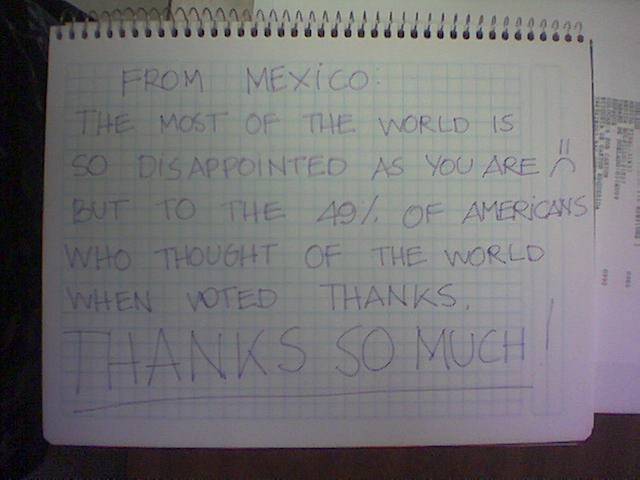 FROM MEXICO:
THE MOST OF THE WORLD IS
SO DISAPPOINTED AS YOU ARE =(
BUT TO THE 49% OF AMERICANS
WHO THOUGHT OF THE WORLD
WHEN VOTED THANKS.
THANKS SO MUCH!